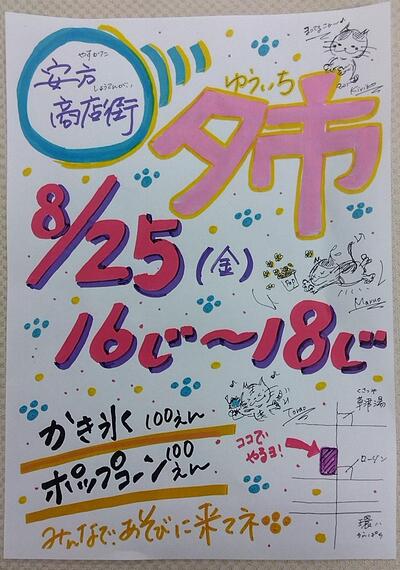 やすかた
安方
しょうてんがい
商店街
ゆういち
夕市
まってるニャ〜♪
Kiriko
8/25(金)
16じ〜18じ
Maruo
かき氷 100えん
ポップコーン 100えん
Torao
ココで
やるヨ!
くさつゆ
草津湯
ローソン
環八
みんなで、あそびに来てネ